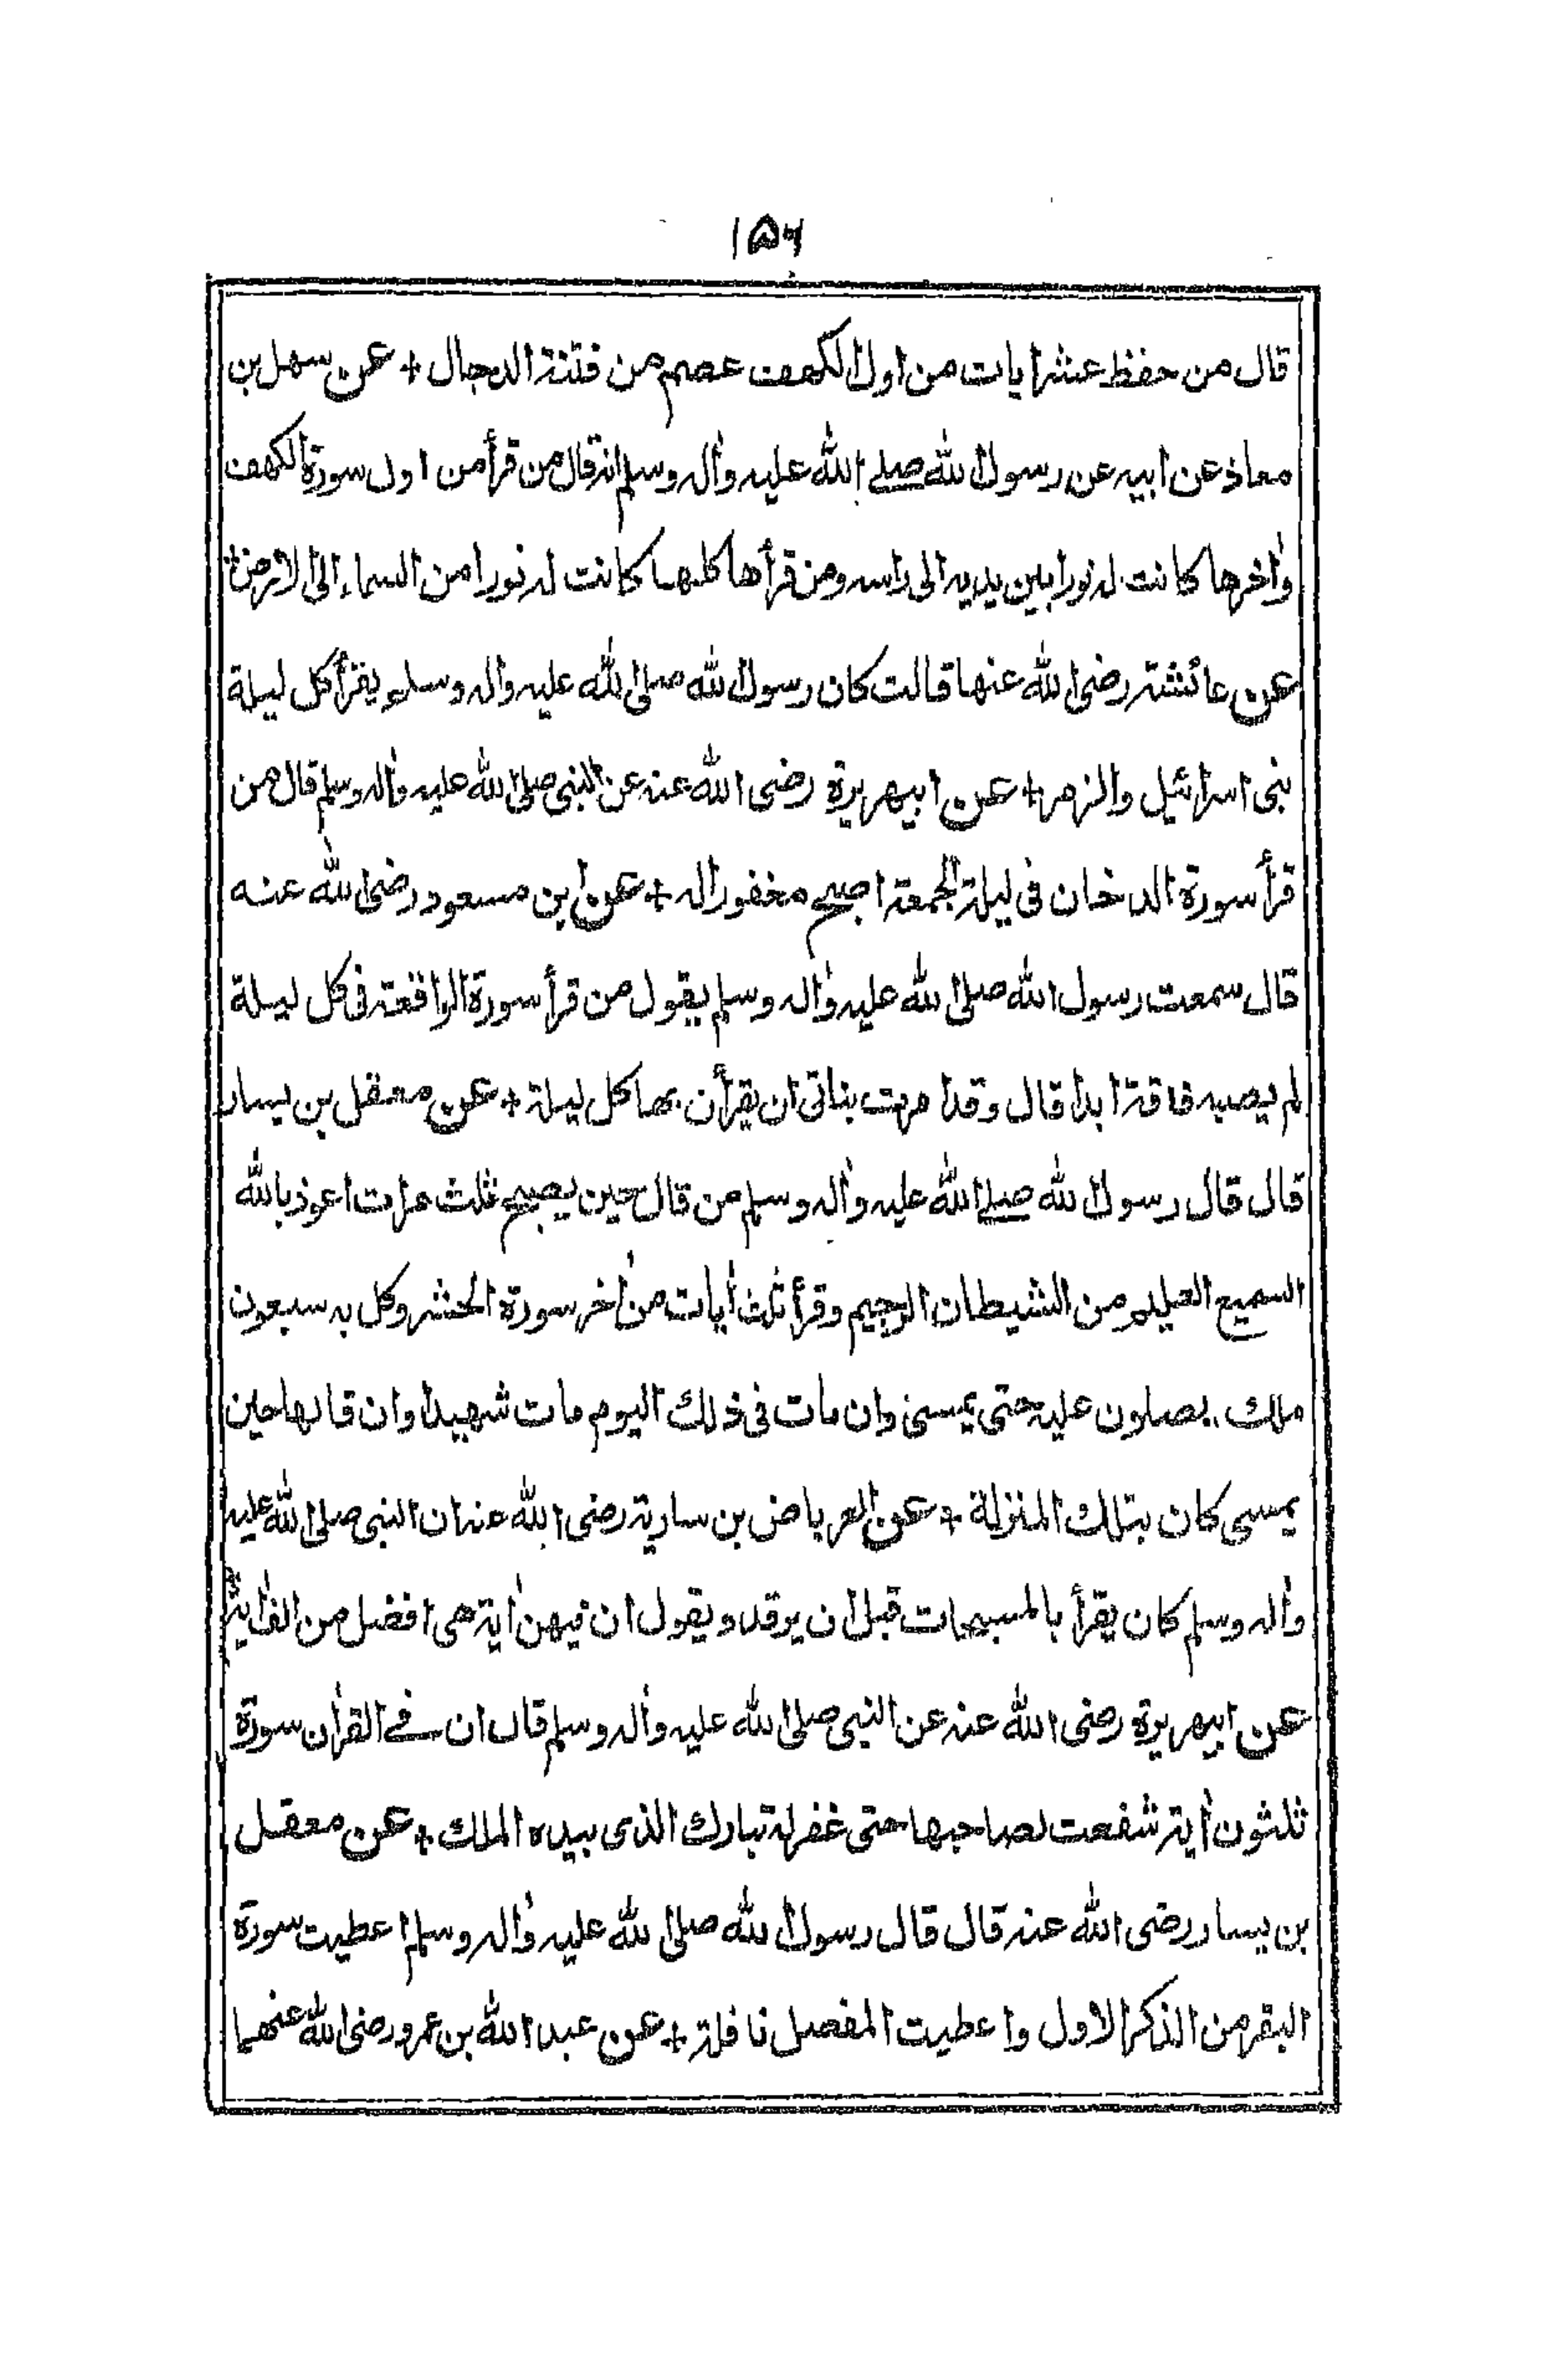 ۱۵۶
قال من حفظ عشر ايات من اول الكهف عصم من فتنة الدجال + عن سهل بن
معاذ عن ابيه عن رسول الله صلے الله عليه واٰله وسلم انه قال من قرأ من اول سورة الكهف
واٰخرها كانت له نورا بين يديه الى راسه ومن قرأها كلها كانت له نورا من السماء الى الارض +
عن عائشة رضى الله عنها قالت كان رسول الله صلى الله عليه واله وسلم يقرأ كل ليلة
بنى اسرائيل والزمر + عن ابيهريرة رضى الله عنه عن النبى صلى الله عليه واٰله وسلم قال من
قرأ سورة الدخان فى ليلة الجمعة اصبح مغفورا له + عن ابن مسعود رضى الله عنه
قال سمعت رسول الله صلى الله عليه واٰله وسلم يقول من قرأ سورة الواقعة فى كل ليلة
لم يصبه فاقة ابدا قال وقد امرت بناتى ان يقرأن بها كل ليلة + عن معقل بن يسار
قال قال رسول الله صلے الله عليه واٰله وسلم من قال حين يصبح ثلث مرات اعوذ بالله
السميع العليم من الشيطان الرجيم وقرأ ثلث اٰيات من اٰخر سورة الحشر وكل به سبعون
ملك يصلون عليه حتى يمسى وان مات فى ذلك اليوم مات شهيدا وان قالها حين
يمسى كان بتلك المنزلة + عن العرباض بن سارية رضى الله عنه ان النبى صلى الله عليه
واٰله وسلم كان يقرأ بالمسبحات قبل ان يرقد ويقول ان فيهن اٰية هى افضل من الف اٰية +
عن ابيهريرة رضى الله عنه عن النبى صلى الله عليه واٰله وسلم قال ان فے القراٰن سورة
ثلثون اٰية شفعت لصاحبها حتى غفر له تبارك الذى بيده الملك + عن معقل
بن يسار رضى الله عنه قال قال رسول الله صلى الله عليه واٰله وسلم اعطيت سورة
البقر من الذكر الاول واعطيت المفصل نافلة + عن عبد الله بن عمرو رضى الله عنهما